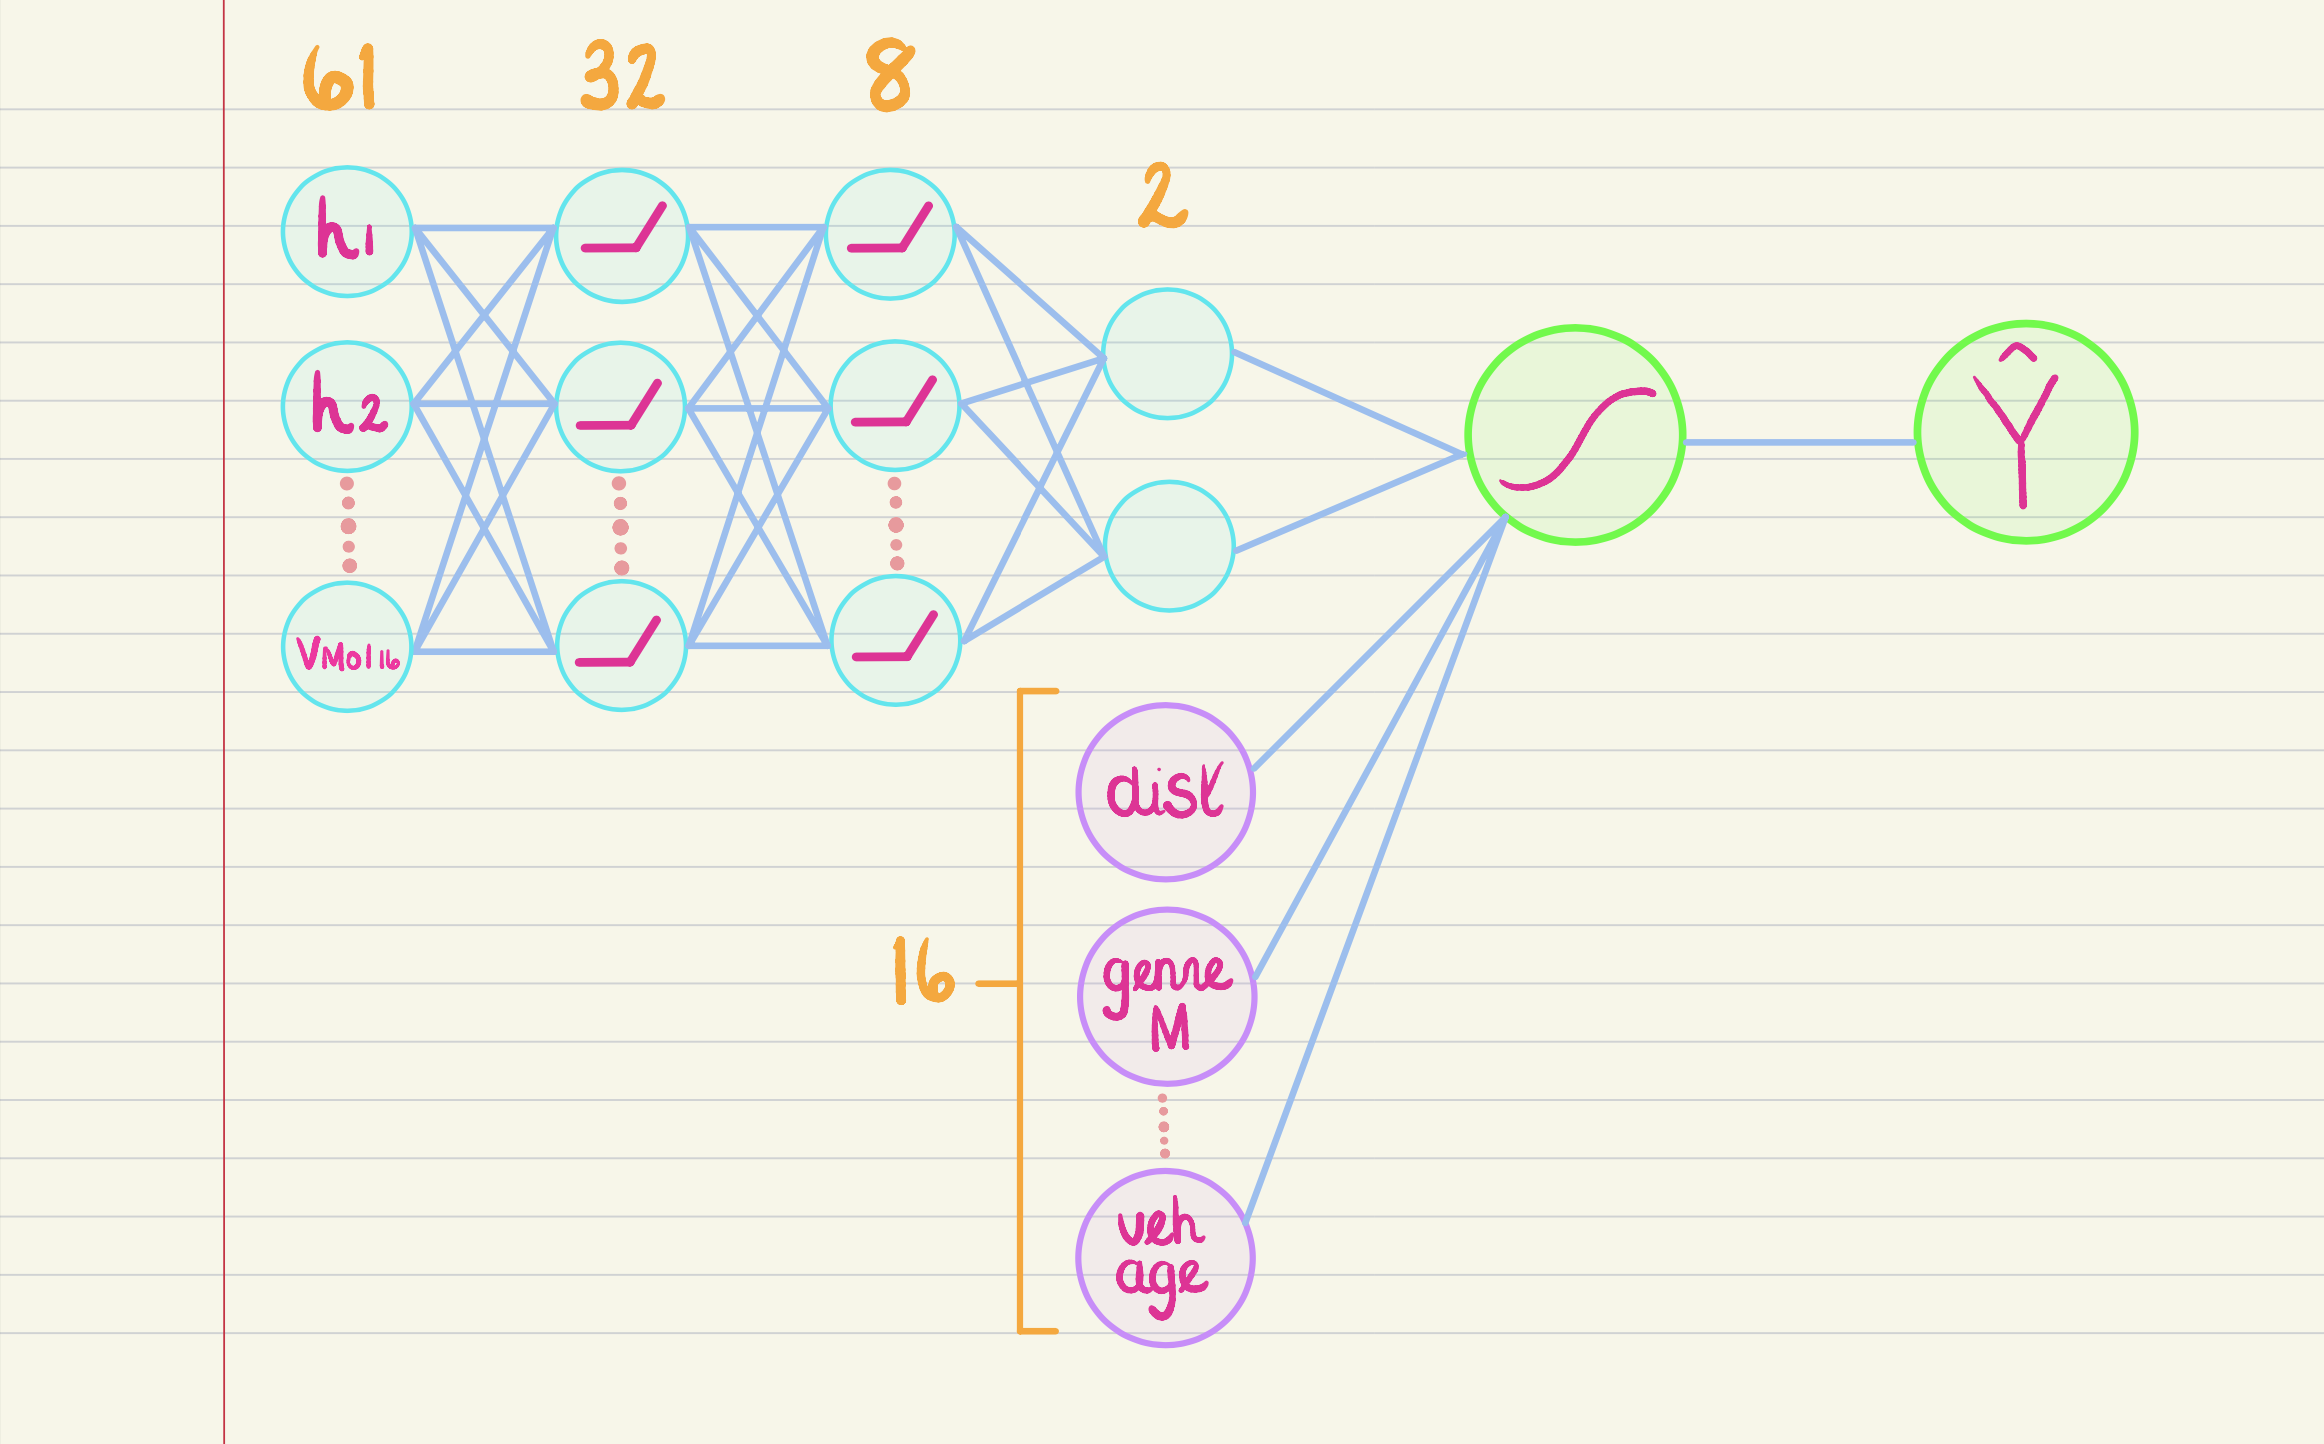 61 32 8
2
h1
h2
VMo116
Ŷ
dist
16
genre
M
veh
age